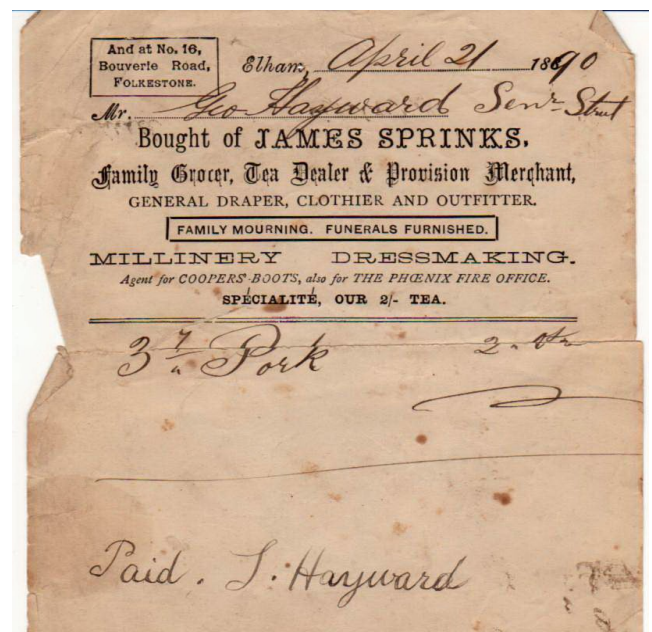 And at No. 16,
Bouverie Road,
FOLKESTONE.
Elham, April 21 1890
Mr. Geo Hayward Senr Street
Bought of JAMES SPRINKS,
Family Grocer, Tea Dealer & Provision Merchant,
GENERAL DRAPER, CLOTHIER AND OUTFITTER.
FAMILY MOURNING. FUNERALS FURNISHED.
MILLINERY DRESSMAKING.
Agent for COOPERS' BOOTS, also for THE PHŒNIX FIRE OFFICE.
SPÉCIALITÉ, OUR 2/- TEA.
3 Pork 2
Paid. J. Hayward